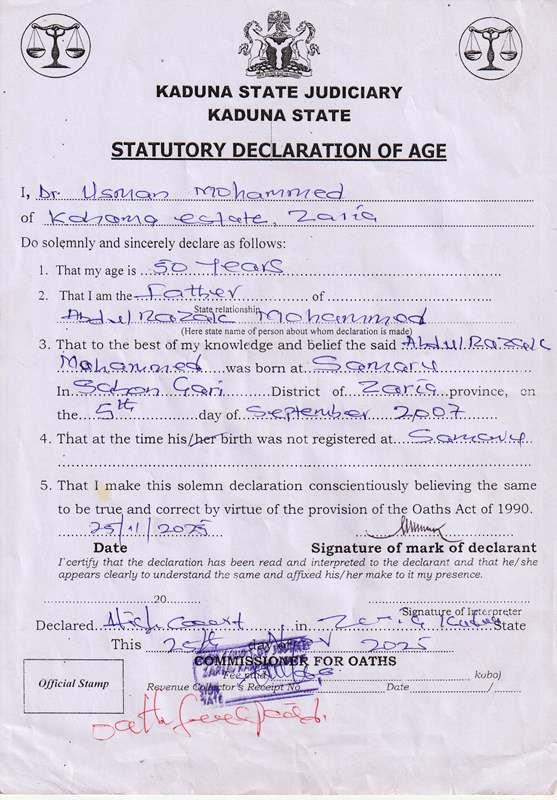 KADUNA STATE JUDICIARY
KADUNA STATE
STATUTORY DECLARATION OF AGE
I, Dr Usman Mohammed
of Kahama estate, Zaria
Do solemnly and sincerely declare as follows:
1. That my age is 50 Years
2. That I am the Father of
State relationship
Abdul Razak Mohammed
(Here state name of person about whom declaration is made)
3. That to the best of my knowledge and belief the said Abdul Razak
Mohammed was born at Samaru
In Sabon Gari District of Zaria province, on
the 5th day of September 2007
4. That at the time his/her birth was not registered at Samaru
5. That I make this solemn declaration conscientiously believing the same
to be true and correct by virtue of the provision of the Oaths Act of 1990.
25/11/2025
Date Signature of mark of declarant
I certify that the declaration has been read and interpreted to the declarant and that he/she
appears clearly to understand the same and affixed his/her make to it my presence.
20
Signature of Interpreter
Declared High Court in Zaria Kaduna State
This day of 2025
COMMISSIONER FOR OATHS
Fee paid kobo)
Official Stamp
Revenue Collector's Receipt No. Date /
Oath fees paid.